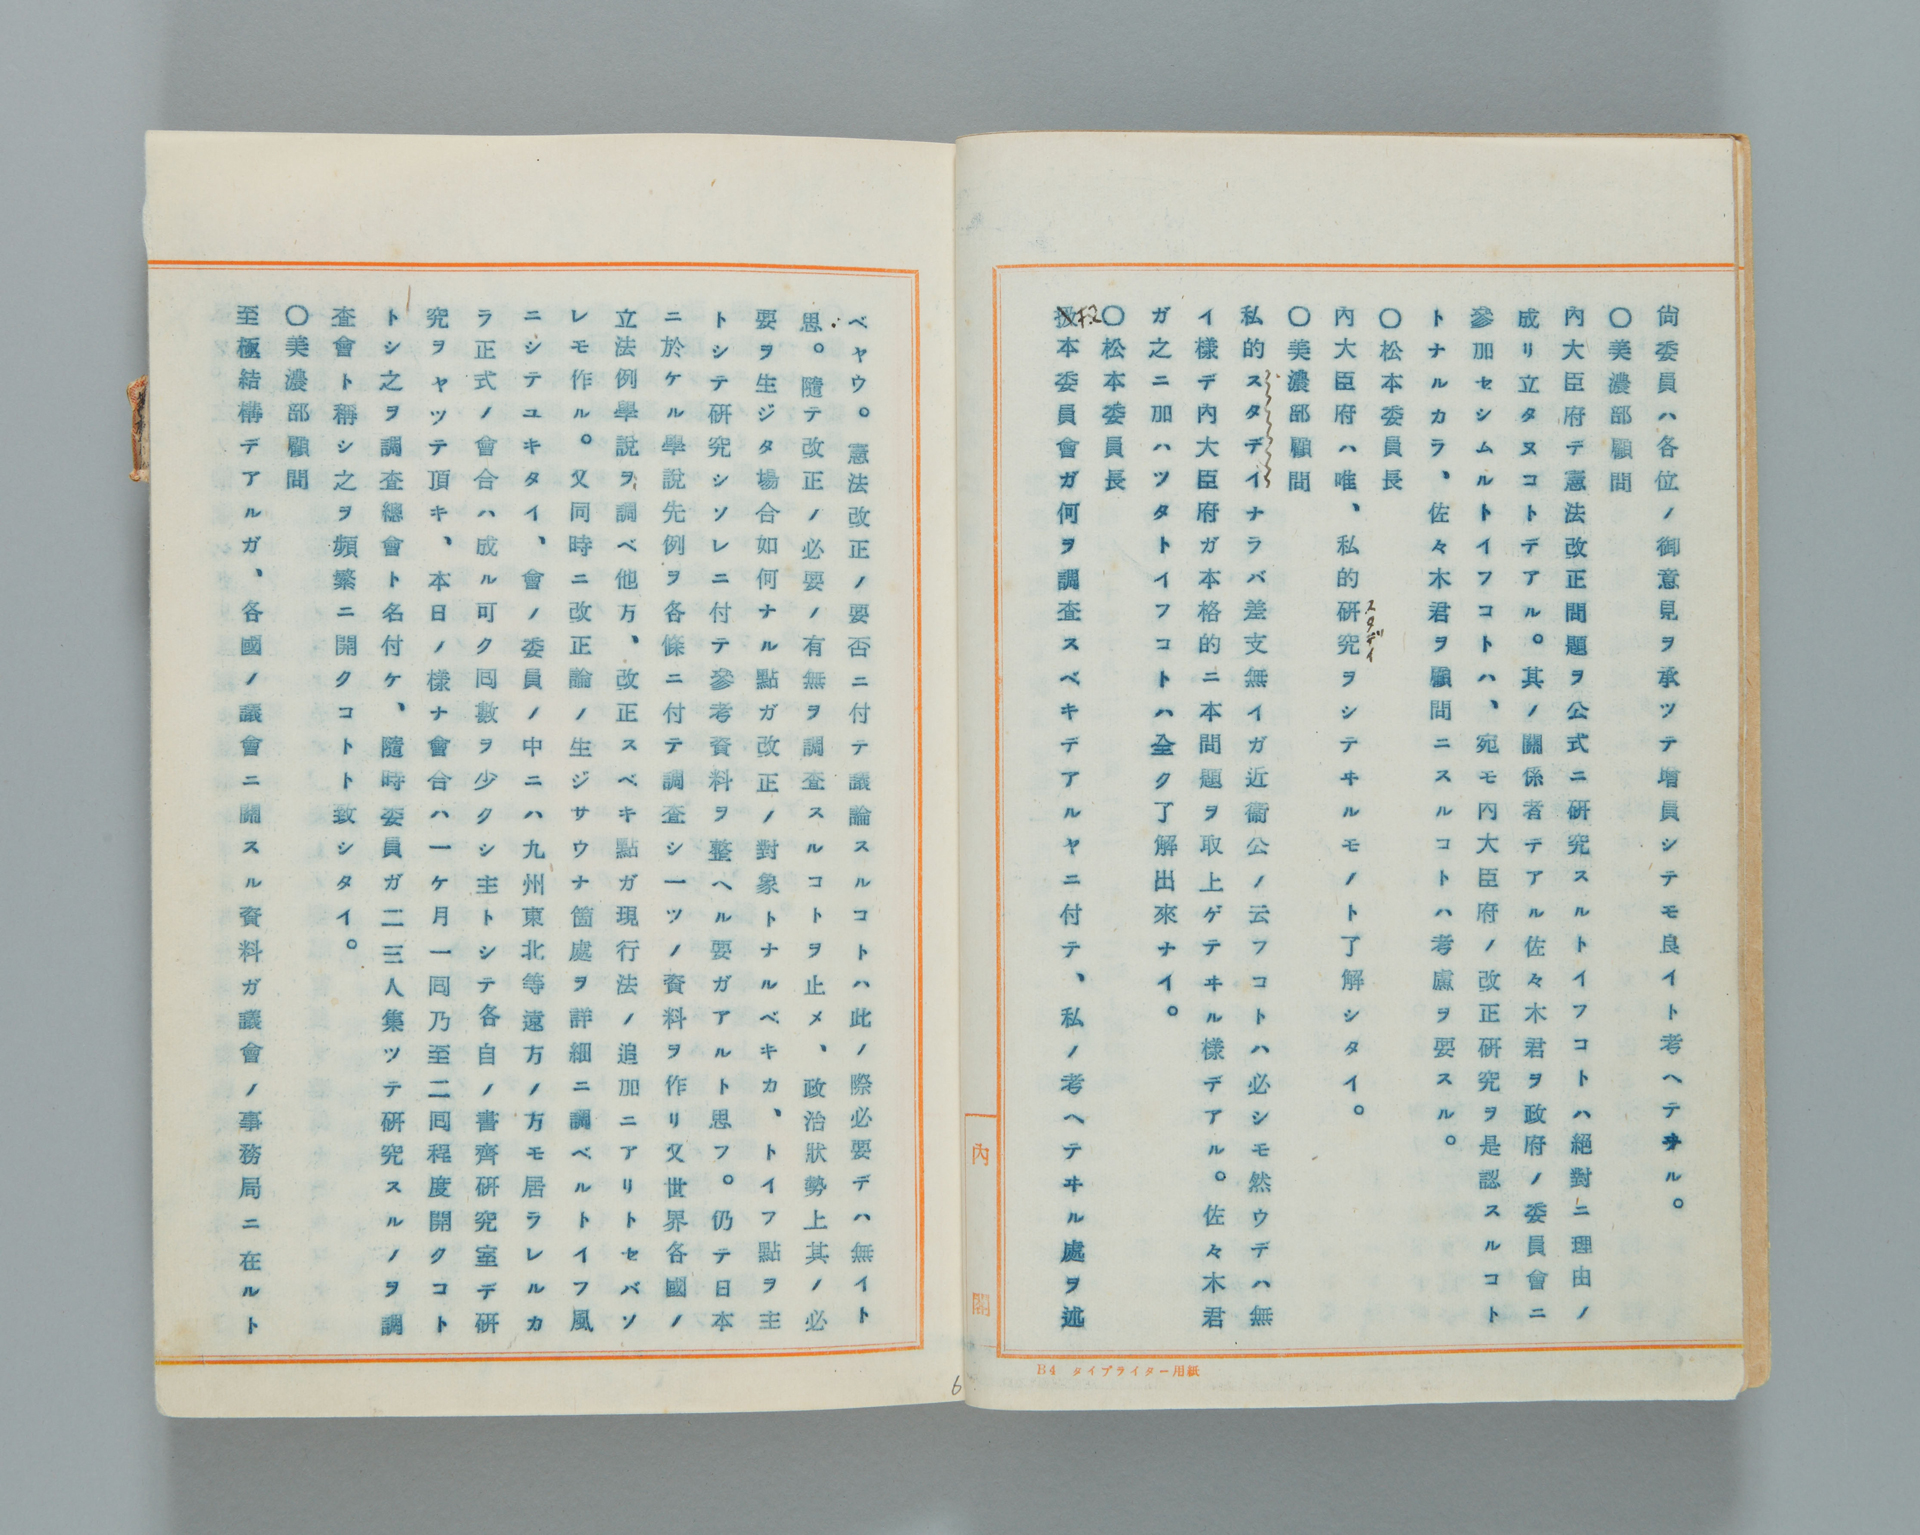 尙委員ハ各位ノ御意見ヲ承ツテ增員シテモ良イト考ヘテヰル。
〇美濃部顧問
內大臣府デ憲法改正問題ヲ公式ニ硏究スルトイフコトハ絕對ニ理由ノ
成リ立タヌコトデアル。其ノ關係者デアル佐々木君ヲ政府ノ委員會ニ
參加セシムルトイフコトハ、宛モ內大臣府ノ改正硏究ヲ是認スルコト
トナルカラ、佐々木君ヲ顧問ニスルコトハ考慮ヲ要スル。
〇松本委員長
內大臣府ハ唯、私的硏究ヲシテヰルモノト了解シタイ。
スタデイ
〇美濃部顧問
私的スタデイナラバ差支無イガ近衞公ノ云フコトハ必シモ然ウデハ無
イ樣デ內大臣府ガ本格的ニ本問題ヲ取上ゲテヰル樣デアル。佐々木君
ガ之ニ加ハツタトイフコトハ全ク了解出來ナイ。
〇松本委員長
扨本委員會ガ何ヲ調査スベキデアルヤニ付テ、私ノ考ヘテヰル處ヲ述
ベヤウ。憲法改正ノ要否ニ付テ議論スルコトハ此ノ際必要デハ無イト
思。隨テ改正ノ必要ノ有無ヲ調査スルコトヲ止メ、政治狀勢上其ノ必
要ヲ生ジタ場合如何ナル點ガ改正ノ對象トナルベキカ、トイフ點ヲ主
トシテ硏究シソレニ付テ參考資料ヲ整ヘル要ガアルト思フ。仍テ日本
ニ於ケル學說先例ヲ各條ニ付テ調査シ一ツノ資料ヲ作リ又世界各國ノ
立法例學說ヲ調ベ他方、改正スベキ點ガ現行法ノ追加ニアリトセバソ
レモ作ル。又同時ニ改正論ノ生ジサウナ箇處ヲ詳細ニ調ベルトイフ風
ニシテユキタイ、會ノ委員ノ中ニハ九州東北等遠方ノ方モ居ラレルカ
ラ正式ノ會合ハ成ル可ク囘數ヲ少クシ主トシテ各自ノ書齊硏究室デ硏
究ヲヤツテ頂キ、本日ノ樣ナ會合ハ一ケ月一囘乃至二囘程度開クコト
トシ之ヲ調査總會ト名付ケ、隨時委員ガ二三人集ツテ硏究スルノヲ調
査會ト稱シ之ヲ頻繁ニ開クコトト致シタイ。
〇美濃部顧問
至極結構デアルガ、各國ノ議會ニ關スル資料ガ議會ノ事務局ニ在ルト
內閣
B4 タイプライター用紙
6